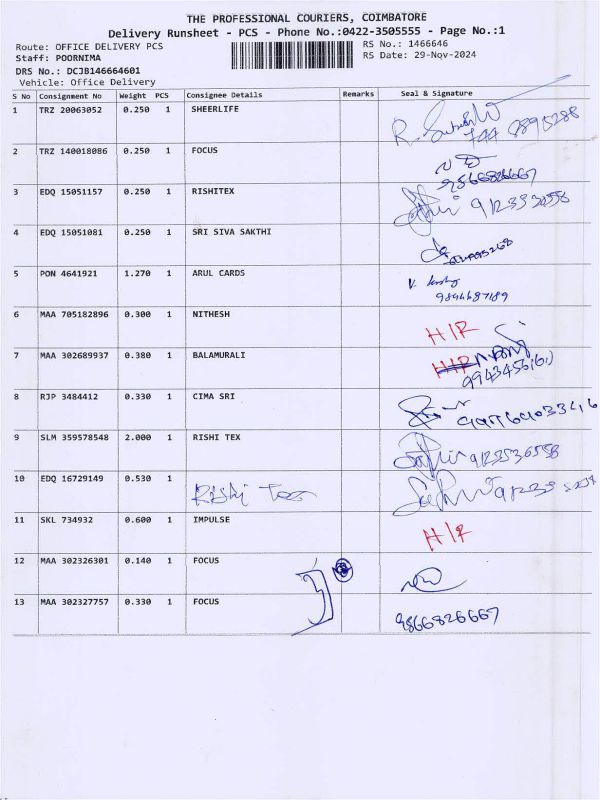 THE PROFESSIONAL COURIERS, COIMBATORE
Delivery Runsheet - PCS - Phone No.:0422-3505555 - Page No.:1
Route: OFFICE DELIVERY PCS RS No.: 1466646
Staff: POORNIMA RS Date: 29-Nov-2024
DRS No.: DCJB146664601
Vehicle: Office Delivery
S No Consignment No Weight PCS Consignee Details Remarks Seal & Signature
1 TRZ 20063052 0.250 1 SHEERLIFE
2 TRZ 140018086 0.250 1 FOCUS
9566826667
3 EDQ 15051157 0.250 1 RISHITEX
4 EDQ 15051081 0.250 1 SRI SIVA SAKTHI
5 PON 4641921 1.270 1 ARUL CARDS
9894687189
6 MAA 705182896 0.300 1 NITHESH H/R
7 MAA 302689937 0.380 1 BALAMURALI H/R
8 RJP 3484412 0.330 1 CIMA SRI
9 SLM 359578548 2.000 1 RISHI TEX
10 EDQ 16729149 0.530 1 Rishi Tex
11 SKL 734932 0.600 1 IMPULSE H/R
12 MAA 302326301 0.140 1 FOCUS
13 MAA 302327757 0.330 1 FOCUS
9566826667